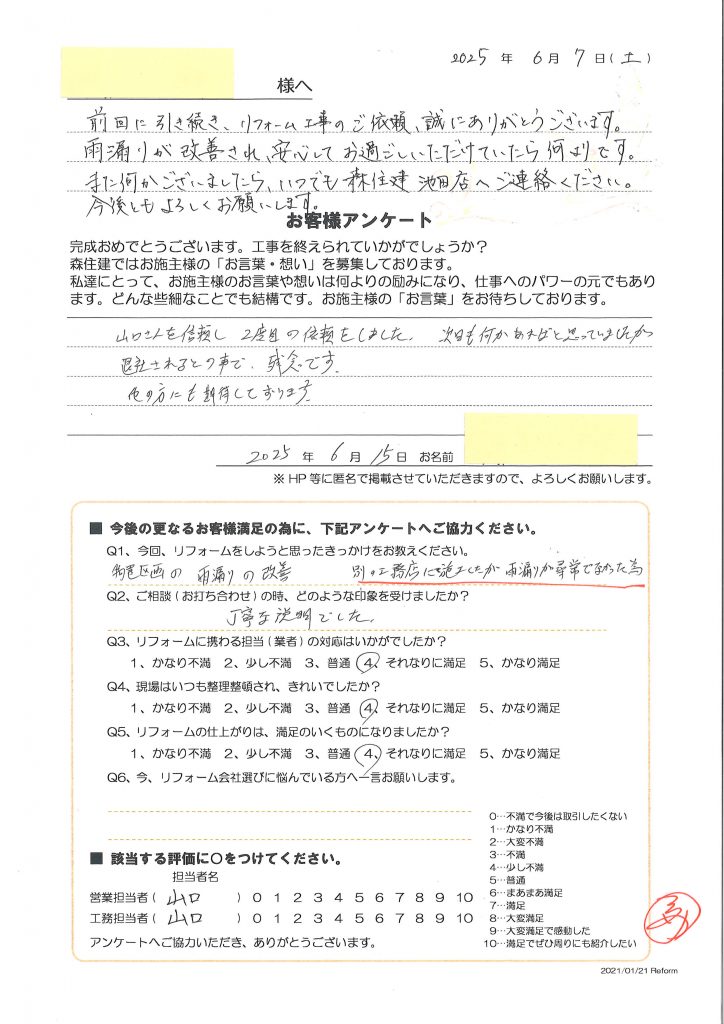 2025 年 6 月 7 日(土)
様へ
前回に引き続き、リフォーム工事のご依頼、誠にありがとうございます。
雨漏りが改善され、安心してお過ごしいただけていたら何よりです。
また何かございましたら、いつでも森住建 池田店へご連絡ください。
今後ともよろしくお願いします。
お客様アンケート
完成おめでとうございます。工事を終えられていかがでしょうか?
森住建ではお施主様の「お言葉・想い」を募集しております。
私達にとって、お施主様のお言葉や想いは何よりの励みになり、仕事へのパワーの元でもあり
ます。どんな些細なことでも結構です。お施主様の「お言葉」をお待ちしております。
山口さんを信頼し 2度目の依頼をしました。 次回も何かあればと思っていましたが
退社されるとの事で、残念です。
他の方にも期待しております
2025 年 6 月 15 日 お名前
※HP 等に匿名で掲載させていただきますので、よろしくお願いします。
■ 今後の更なるお客様満足の為に、下記アンケートへご協力ください。
Q1、今回、リフォームをしようと思ったきっかけをお教えください。
区画の 雨漏りの改善 別の工務店にて施工したが 雨漏りが尋常でなかった為
Q2、ご相談(お打ち合わせ)の時、どのような印象を受けましたか?
丁寧な説明でした。
Q3、リフォームに携わる担当(業者)の対応はいかがでしたか?
1、かなり不満 2、少し不満 3、普通 4、それなりに満足 5、かなり満足
Q4、現場はいつも整理整頓され、きれいでしたか?
1、かなり不満 2、少し不満 3、普通 4、それなりに満足 5、かなり満足
Q5、リフォームの仕上がりは、満足のいくものになりましたか?
1、かなり不満 2、少し不満 3、普通 4、それなりに満足 5、かなり満足
Q6、今、リフォーム会社選びに悩んでいる方へ一言お願いします。
■ 該当する評価に○をつけてください。
担当者名
営業担当者( 山口 ) 0 1 2 3 4 5 6 7 8 9 10
工務担当者( 山口 ) 0 1 2 3 4 5 6 7 8 9 10
アンケートへご協力いただき、ありがとうございます。
0…不満で今後は取引したくない
1…かなり不満
2…大変不満
3…不満
4…少し不満
5…普通
6…まあまあ満足
7…満足
8…大変満足
9…大変満足で感動した
10…満足でぜひ周りにも紹介したい
2021/01/21 Reform